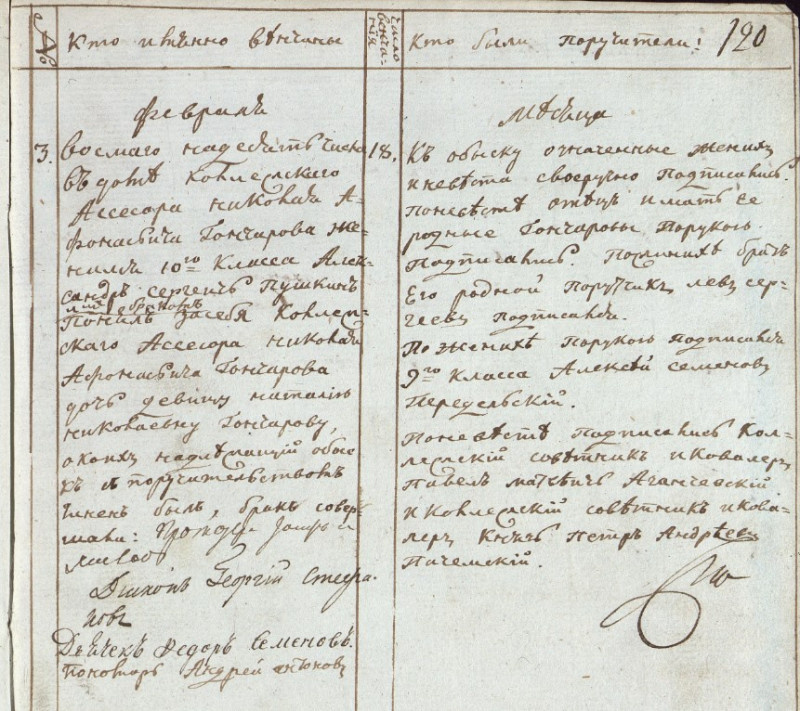 №
Кто имѣнно вѣнчаны
число
венча-
нія
Кто были поручители:
190
февраля
мѣсяца
3.
восмаго надесѣть числа
18.
въ домѣ Коллежскаго
Асесора николая А-
фонасьевича Гончарова же-
нился 10го класса Алек-
сандръ сергеичь Пушкинъ
первымъ бракомъ
Понялъ засебя Коллеж-
скаго Асесора николая
Афонасьевича Гончарова
дочь девицу наталію
николаевну Гончарову,
окоихъ надлѣжащій обы-
скъ съ поручительствомъ
чиненъ былъ, бракъ совер-
шали:
Дьяконъ Георгій Стефа-
новъ
Дьячекъ Федоръ Семеновъ.
Пономарь Андрей
Къ обыску означенные женихъ
и невѣста своеручно подписались.
Поневѣстѣ отецъ и мать ее
родные Гончаровы порукою
подписались. Поженихѣ братъ
Его родной поручикъ левъ сер-
геевъ подписался.
По женихѣ порукою подписался
9го класса Алексѣй семеновъ
Передельскій.
Поневѣстѣ подписались Кол-
лежскій совѣтникъ и Кавалеръ
Павелъ матвѣичь Азанчевскій
и Коллежскій совѣтникъ и Кава-
леръ Князь Петръ Андрѣевъ